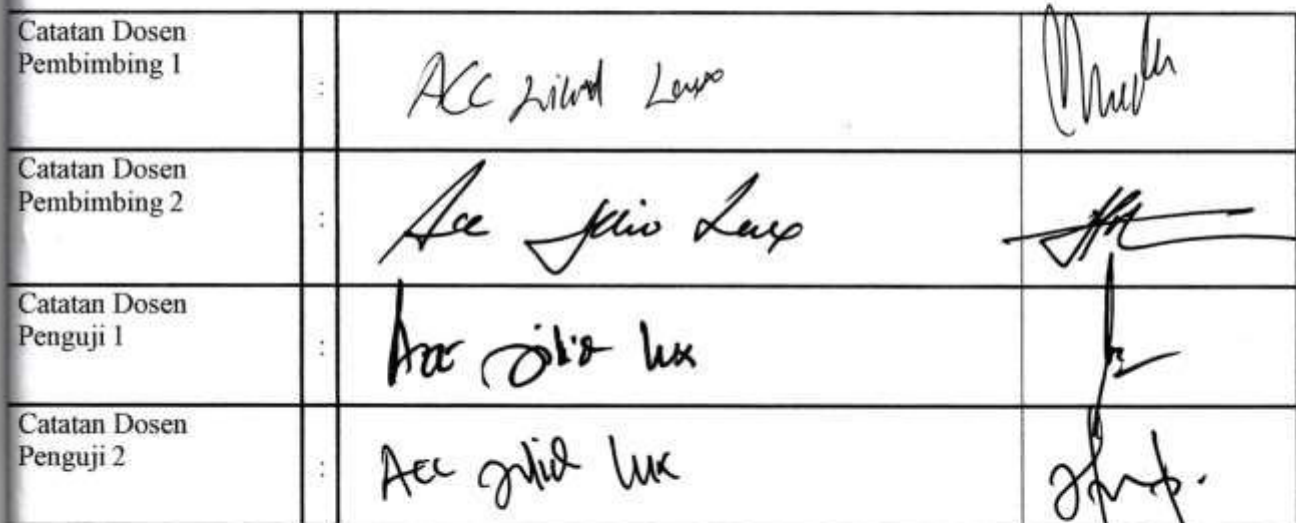 Catatan Dosen
Pembimbing 1
:
ACC Jilid Lux
Catatan Dosen
Pembimbing 2
:
Acc Jilid Lux
Catatan Dosen
Penguji 1
:
Acc jilid lux
Catatan Dosen
Penguji 2
:
Acc jilid lux